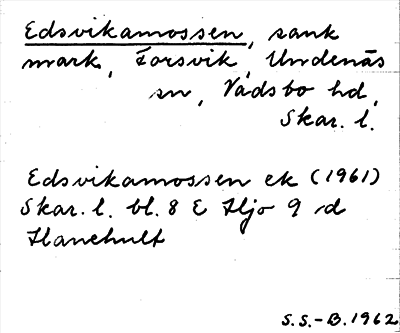 Edsvikamossen, sank
mark, Forsvik, Undenäs
sn, Vadsbo hd,
Skar. l.
Edsvikamossen ek (1961)
Skar. l. bl. 8 E Hjo 9 d
Hanehult
S.S.-B. 1962